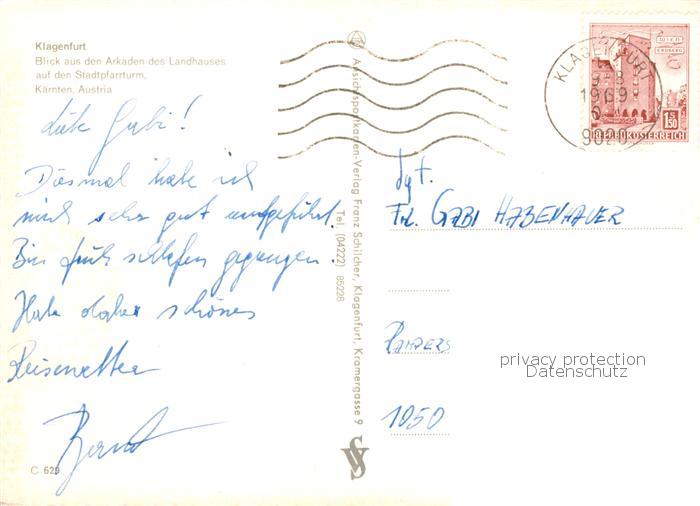 Klagenfurt
Blick aus den Arkaden des Landhauses
auf den Stadtpfarrturm.
Kärnten, Austria
Liebe Gabi!
Diesmal habe ich
mich sehr gut aufgeführt.
Bin früh schlafen gegangen.
Habe daher schönes
Reisewetter
Bernd
C 629
Ansichtspostkarten-Verlag Franz Schilcher, Klagenfurt, Kramergasse 9
Tel. (04222) 85228
KLAGENFURT
1969
9020
WIEN
ERDBERG
S 1.50
REPUBLIK ÖSTERREICH
Frl. GABI HABENHAUER
1050
privacy protection
Datenschutz